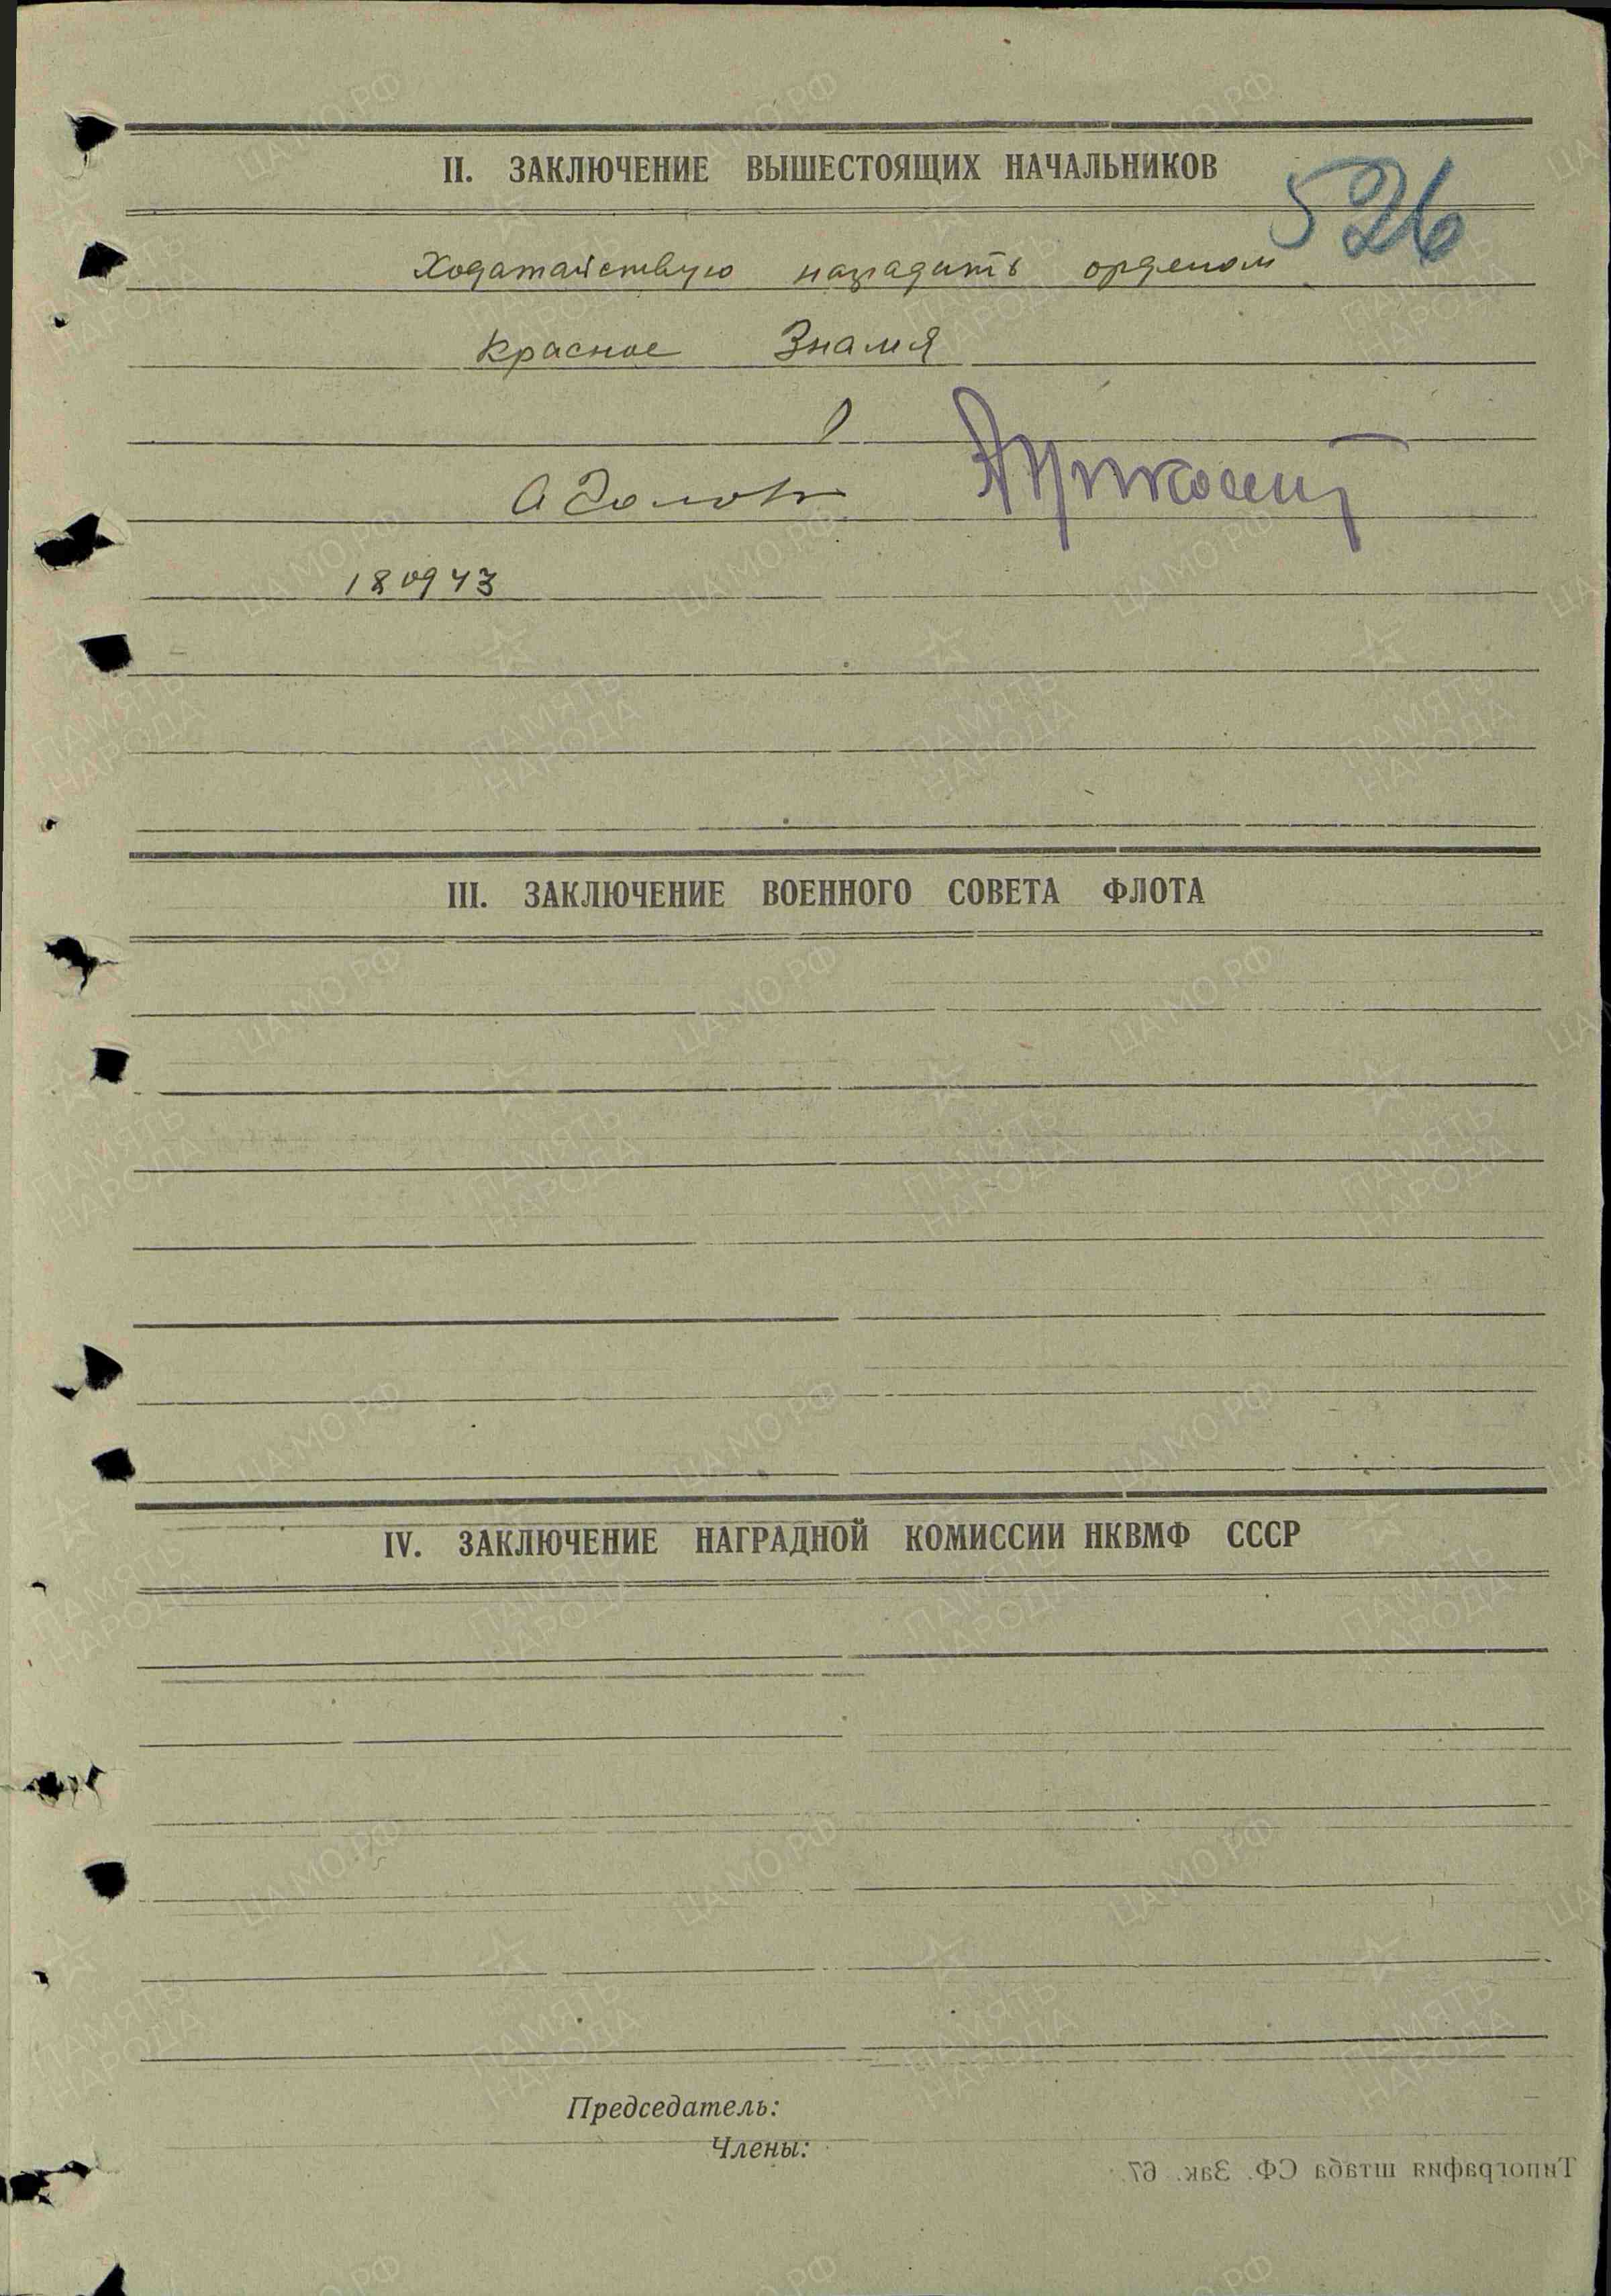 II. ЗАКЛЮЧЕНИЕ ВЫШЕСТОЯЩИХ НАЧАЛЬНИКОВ
526
Ходатайствую наградить орденом
Красное Знамя
180943
III. ЗАКЛЮЧЕНИЕ ВОЕННОГО СОВЕТА ФЛОТА
IV. ЗАКЛЮЧЕНИЕ НАГРАДНОЙ КОМИССИИ НКВМФ СССР
Председатель:
Члены:
Типография штаба СФ. Зак. 67.
ЦАМО.РФ
ПАМЯТЬ
НАРОДА